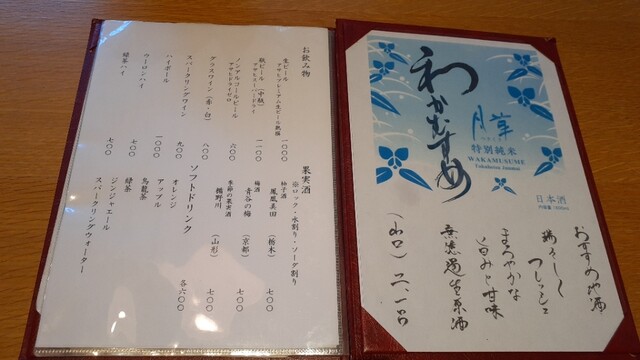 お飲み物
生ビール
アサヒプレミアム生ビール熟撰
一〇〇〇
瓶ビール（中瓶）
アサヒスーパードライ
一一〇〇
ノンアルコールビール
アサヒドライゼロ
六〇〇
グラスワイン（赤・白）
八〇〇
スパークリングワイン
九〇〇
ハイボール
一〇〇〇
ウーロンハイ
七〇〇
緑茶ハイ
七〇〇
果実酒
※ロック・水割り・ソーダ割り
柚子酒
鳳凰美田（栃木）
七〇〇
梅酒
青谷の梅（京都）
七〇〇
季節の果実酒
楯野川（山形）
七〇〇
ソフトドリンク
各六〇〇
オレンジ
アップル
烏龍茶
緑茶
ジンジャエール
スパークリングウォーター
わかむすめ
特別純米
WAKAMUSUME
Tokubetsu Junmai
日本酒
おすすめ地酒
瑞々しく
フレッシュ
まろやかな
旨みと甘味
無濾過生原酒
（山口）